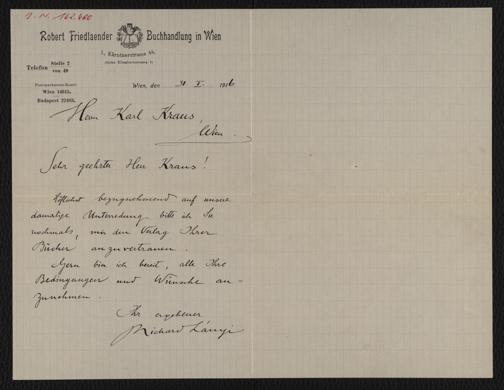 I. N. 162.460
Robert Friedlaender Buchhandlung in Wien
I., Kärntnerstrasse 44.
Telefon Stelle 2
von 49
Wien, den 31. X. 1916
Postsparkassen-Konti
Budapest
Herrn Karl Kraus,
Wien.
Sehr geehrter Herr Kraus!
Höflichst bezugnehmend auf unsere
damalige Unterredung bitte ich Sie
nochmals, mir den Verlag Ihrer
Bücher anzuvertrauen.
Gern bin ich bereit, alle Ihre
Bedingungen und Wünsche an-
zunehmen.
Ihr ergebener
Richard Lányi